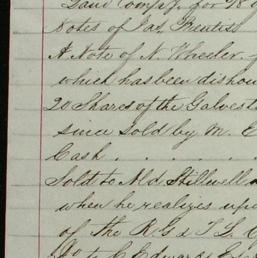 Land Comp'y. for 98
Notes of Jas. Prentiss
A Note of N. Wheeler
which has been dishon
20 Shares of the Galvest
since sold by M. E
Cash . . . . .
Sold to Md Stillwell
when he realizes upo
of the R G & T L C
Do to C Edwards